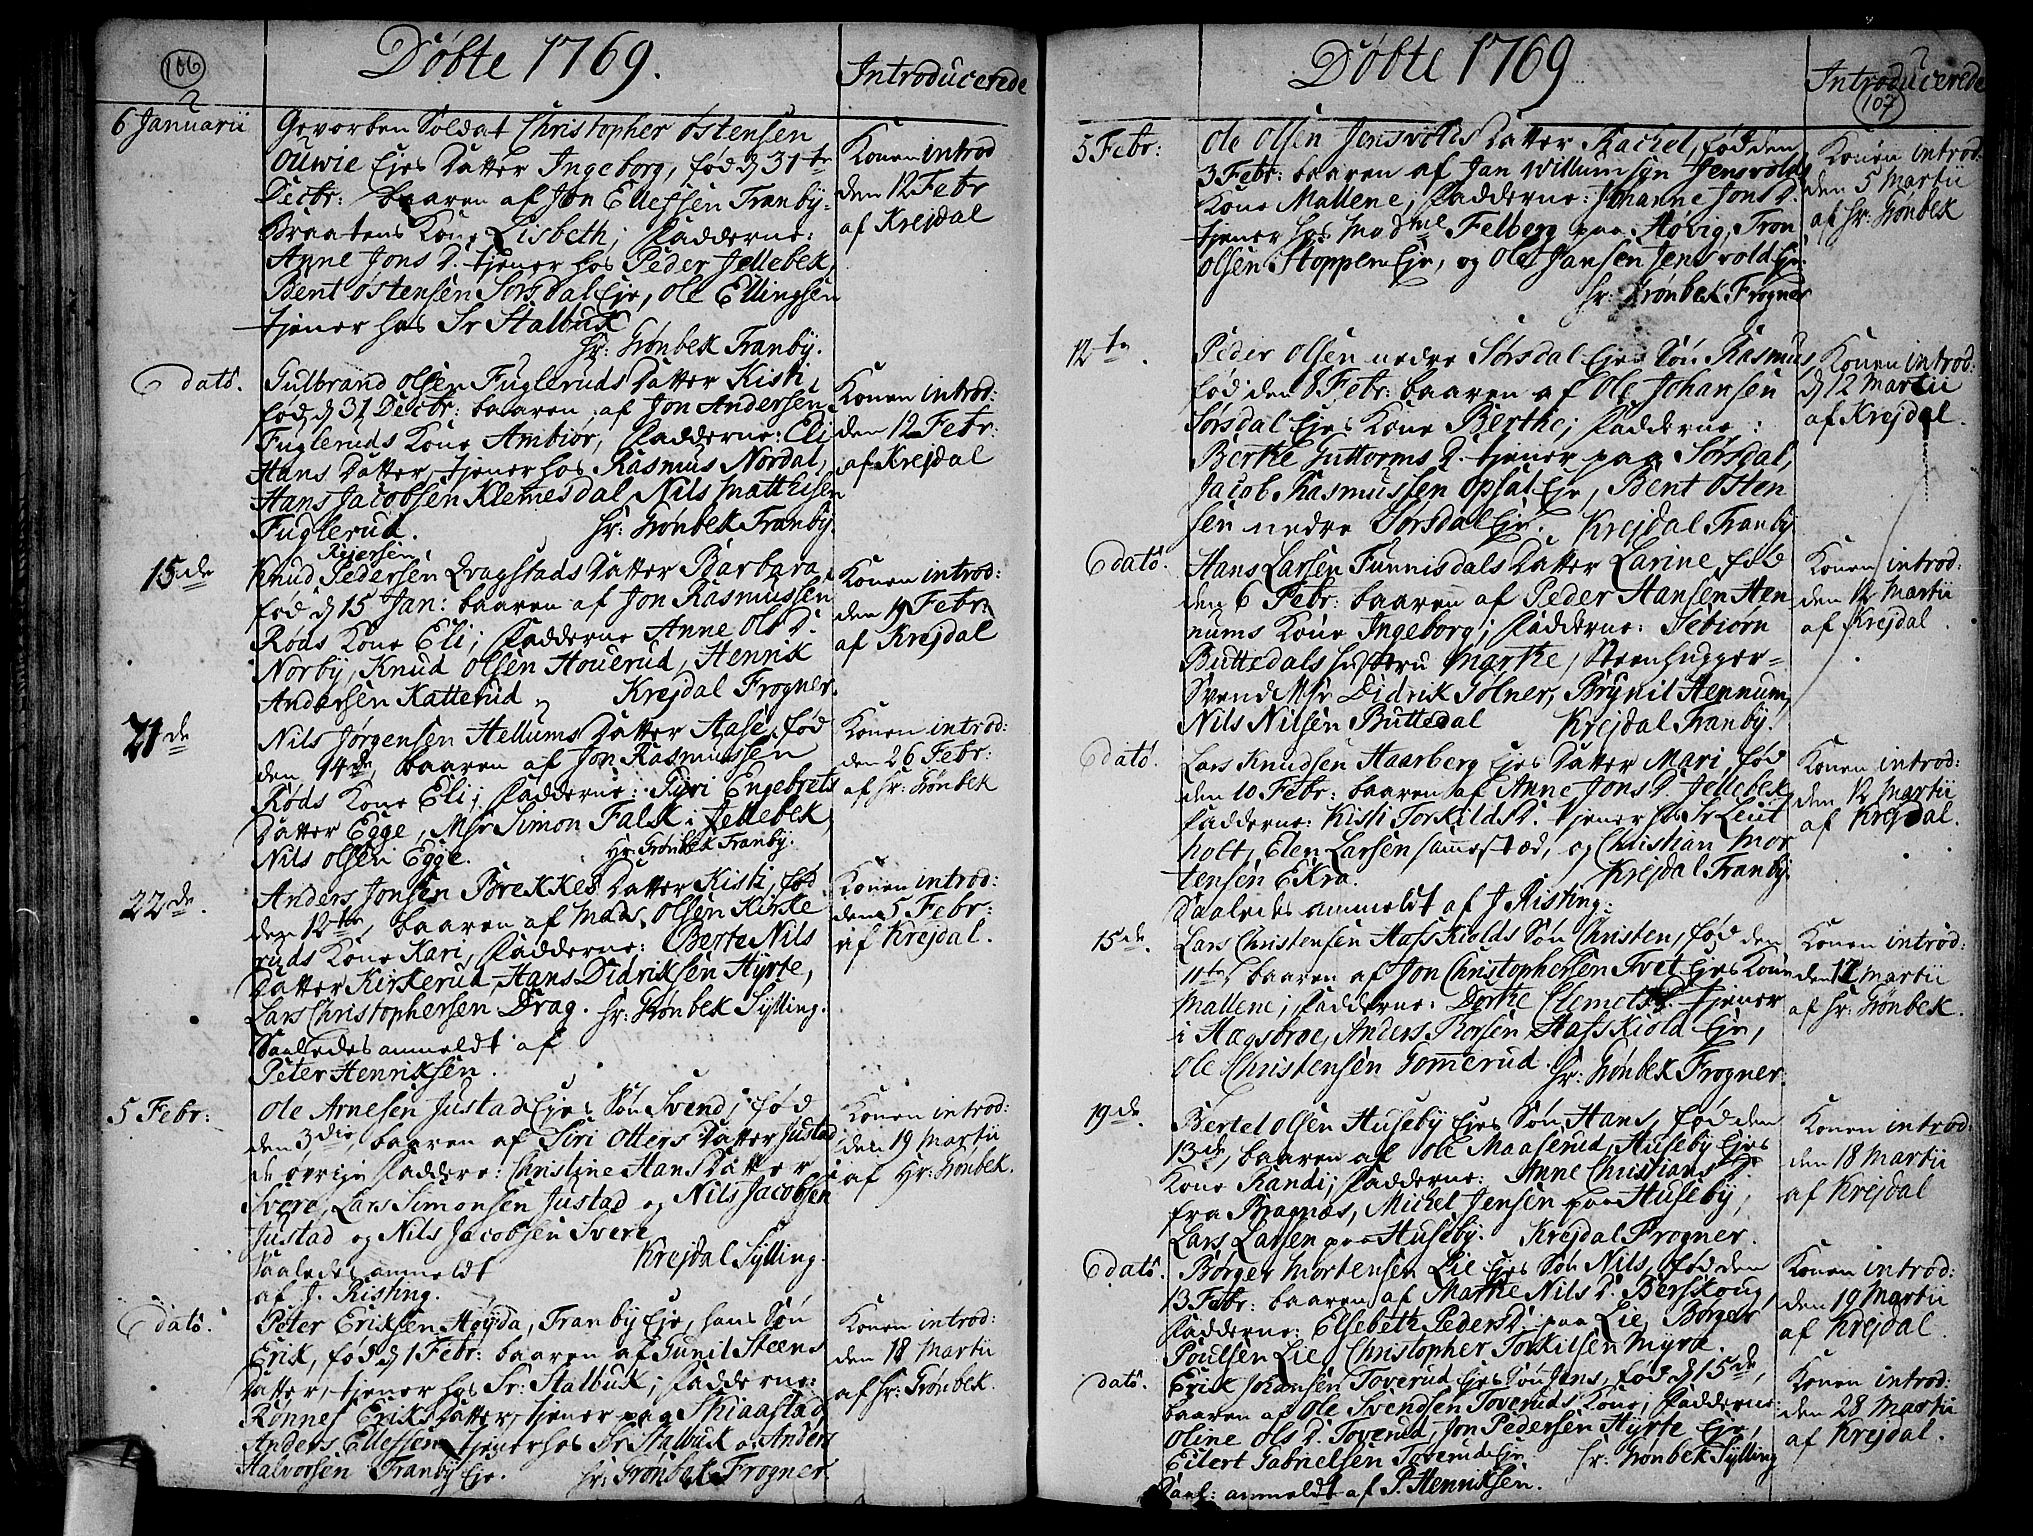 106
Döbte 1769.
Introducerede
6 Januarii
Gevorben Soldat Christopher Östensen
Ouwie Ejes Datter Ingeborg, fød d 31te
Decbr: baaren af Jon Ellefsen Tranby-
Braatens Kone Lisbeth; Fadderne:
Anne Jons D. tjener hos Peder Jellebek,
Bent Östensen Sørsdal Eje, Ole Ellingsen
tjener hos Sr Stalbuk
hr: Grønbek Tranby.
Konen introd
den 12 Febr
af Krejdal
dato.
Gulbrand Olsen Fugleruds Datter Kisti,
fød d 31 Decbr: baaren af Jon Andersen
Fugleruds Kone Ambiør, Fadderne: Eli
Hans Datter, tjener hos Rasmus Nordal,
Hans Jacobsen Klemesdal, Nils Mathisen
Fuglerud. hr: Grønbek Tranby.
Konen introd:
den 12 Febr:
af Krejdal
15de
Rejersen
Knud Pedersen Dragstads Datter Barbara,
fød d 15 Jan: baaren af Jon Rasmussen
Røds Kone Eli; Fadderne Anne Ols D.
Norby, Knud Olsen Houerud, Henrik
Andersen Katterud. Krejdal Frogner.
Konen introd:
den 19 Febr:
af Krejdal
21de
Nils Jørgensen Hellums Datter Aase, fød
den 14de, baaren af Jon Rasmussen
Røds Kone Eli; Fadderne: Gyri Engebrets
Datter Egge, Msr Simon Falsk i Jellebek
Nils Olsen Egge. Hr: Grønbek Tranby.
Konen introd:
den 26 Febr:
af hr: Grønbek
22de.
Anders Jonsen Brekkes Datter Kisti, fød
den 12te, baaren af Mads Olsen Kirke
ruds Kone Kari, Fadderne: Berte Nils
Datter Kirkerud, Hans Didriksen Hyrte,
Lars Christophersen Drag. hr: Grønbek Sylling.
Saaledes anmeldt af
Peter Henriksen.
Konen introd:
den 5 Febr:
af Krejdal.
5 Febr:
Ole Arnesen Justad Ejes Søn Svend, fød
den 3die, baaren af Siri Otters Datter Justad
de øvrige Faddere: Christine Hans Datter
Svere, Lars Simonsen Justad og Nils Jacobsen
Justad og Nils Jacobsen Svere
Krejdal Sylling.
Saaledes anmeldt
af J. Risting.
Konen introd:
den 19 Martii
af Hr: Grønbek.
dato.
Peter Eriksen Høyda, Tranby Eje, hans Søn
Erik, fød d 1 Febr: baaren af Gunil Steens
Datter, tjener hos Sr: Stalbuk; Fadderne:
Rønnef Eriks Datter, tjener paa Skiaastad,
Anders Ellefsen tjener hos Sr Stalbuk og Anders
Halvorsen Tranby Eje. hr: Grønbek Frogner
Konen introd:
den 18 Martii
af hr: Grønbek.
Döbte 1769
Introducerede
107
5 Febr:
Ole Olsen Jensvolds Datter Rachel, fød den
3 Febr: baaren af Jan Willumsen Jensvolds
Kone Mallene, Fadderne: Johanne Jons D.
tjener hos Madme Felberg paa Høvig, Tron
Olsen Stoppen Eje, og Ole Jansen Jensvold Eje.
hr: Grønbek Frogner
Konen introd:
den 5 Martii
af hr: Grønbek
12te.
Peder Olsen nedre Sørsdal Ejes Søn Rasmus,
fød den 8 Febr: baaren af Ole Johansen
Sørsdal Ejes Kone Berthe; Fadderne:
Berthe Guttorms D. tjener paa Sørsdal,
Jacob Rasmussen Opsal Eje, Bent Osten
sen nedre Sørsdal Eje. Krejdal Tranby
Konen introd:
d 12 Martii
af Krejdal.
dato.
Hans Larsen Tunnisdals Datter Larine, fød
den 6 Febr: baaren af Peder Hansen Hen
nums Kone Ingeborg; Fadderne: Tebiørn
Buttedals hustru Marthe, Steenhugger-
Svend Msr Didrik Golner, Brynil Hennum,
Nils Nilsen Buttedal Krejdal Tranby.
Konen introd:
den 12 Martii
af Krejdal.
dato.
Lars Knudsen Haarberg Ejes Datter Mari, fød
den 10 Febr: baaren af Anne Jons D. Jellebek,
Fadderne: Kisti Torkilds D. tjener hos Sr Leut
holt, Elen Larsen sammested, og Christian Mor
tensen Ekra. Krejdal Tranby
Saaledes anmeldt af J. Risting:
Konen introd:
den 12 Martii
af Krejdal.
15de.
Lars Christensen Hafskiolds Søn Christen, fød den
11te, baaren af Jon Christophersen Tvet Ejes Kone
Mallene; Fadderne: Dorthe Clemets D. tjener
i Hagsbroe, Anders Torsen Hafskiold Eje,
Ole Christensen Gommerud. hr: Grønbek Frogner.
Konen introd:
den 12 Martii
af hr: Grønbek.
19de
Bertel Olsen Huseby Ejes Søn Hans, fød den
13de, baaren af Ole Maaserud, Huseby Ejes
Kone Randi; Fadderne: Anne Christians D.
fra Bragnæs, Michel Jensen paa Huseby,
Lars Larsen paa Huseby. Krejdal Frogner.
Konen introd:
den 18 Martii
af Krejdal
dato.
Børger Mortensen Lie Ejes Søn Nils, fød den
13 Febr: baaren af Mathe Nils D. Berskoug,
Fadderne: Elsebeth Peders D. paa Lie, Børger
Poulsen Lie, Christopher Torkilsen Myra.
Konen introd:
den 19 Martii
af Krejdal.
dato.
Erik Johansen Toverud Ejes Søn Jens, fød d 15de,
baaren af Ole Svendsen Toveruds Kone, Fadderne:
Oline Ols D. Toverud, Jon Pedersen Hyrte Eje,
Eilert Gabrielsen Toverud Eje
hr: Grønbek Sylling
Saal: anmeldt af P. Henriksen.
Konen introd:
den 28 Martii
af Krejdal.